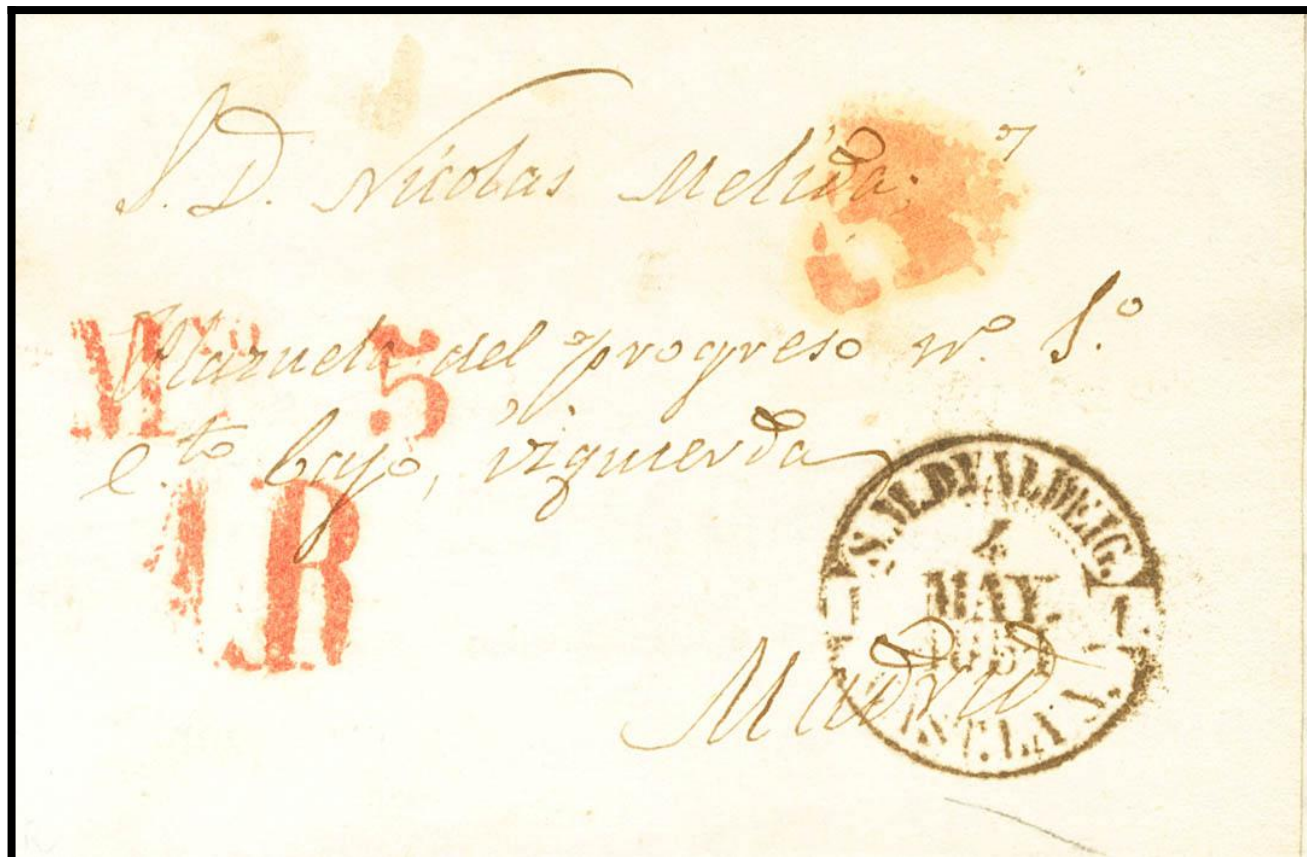 S. D. Nicolas Melida,
Plazuela del progreso nº. 1.º
c.to bajo, izquierda
Ms 5
1R
S.M.DE VALDEIG.
4
MAY.
1 1
Madrid